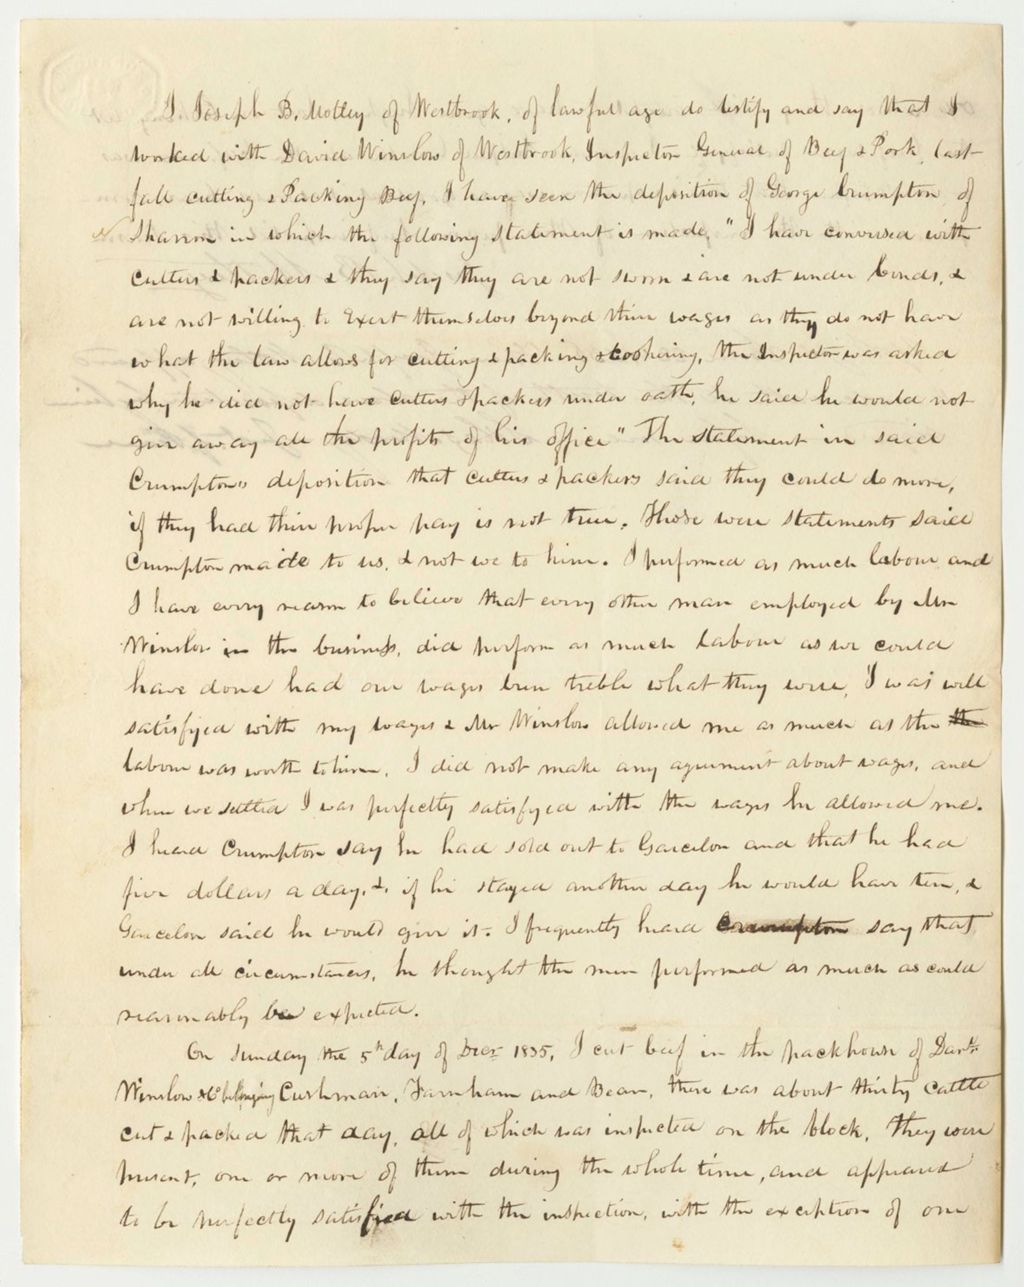 I Joseph B. Motley of Westbrook, of lawful age do testify and say that I
worked with David Winslow of Westbrook, Inspector General of Beef & Pork, last
fall cutting & Packing Beef. I have seen the deposition of George Crumpton, of
Sharon in which the following statement is made, "I have conversed with
cutters & packers & they say they are not sworn & are not under bonds, &
are not willing to Exert themselves beyond their wages as they do not have
what the law allows for cutting & packing & coopering, the Inspector was asked
why he did not have cutters & packers under oath, he said he would not
give away all the profits of his office" The statement in said
Crumpton's deposition that cutters & packers said they could do more,
if they had their proper pay is not true. Those were statements said
Crumpton made to us, & not we to him. I performed as much labour and
I have every reason to believe that every other man employed by Mr
Winslow in the business, did perform as much labour as we could
have done had our wages been treble what they were, I was well
satisfyed with my wages & Mr Winslow allowed me as much as the the
labour was worth to him. I did not make any agreement about wages, and
when we settled I was perfectly satisfyed with the wages he allowed me.
I heard Crumpton say he had sold out to Garcelon and that he had
five dollars a day, &. if he stayed another day he would have ten, &
Garcelon said he would give it. I frequently heard Crumpton say that
under all circumstances, he thought the men performed as much as could
reasonably be expected.
On Sunday the 5th day of Decr 1835, I cut beef in the packhouse of Danl.
Winslow & Co belonging Cushman, Farnham and Bear, there was about thirty cattle
cut & packed that day, all of which was inspected on the block, they were
present, one or more of them during the whole time, and appeared
to be perfectly satisfied with the inspection, with the exception of one